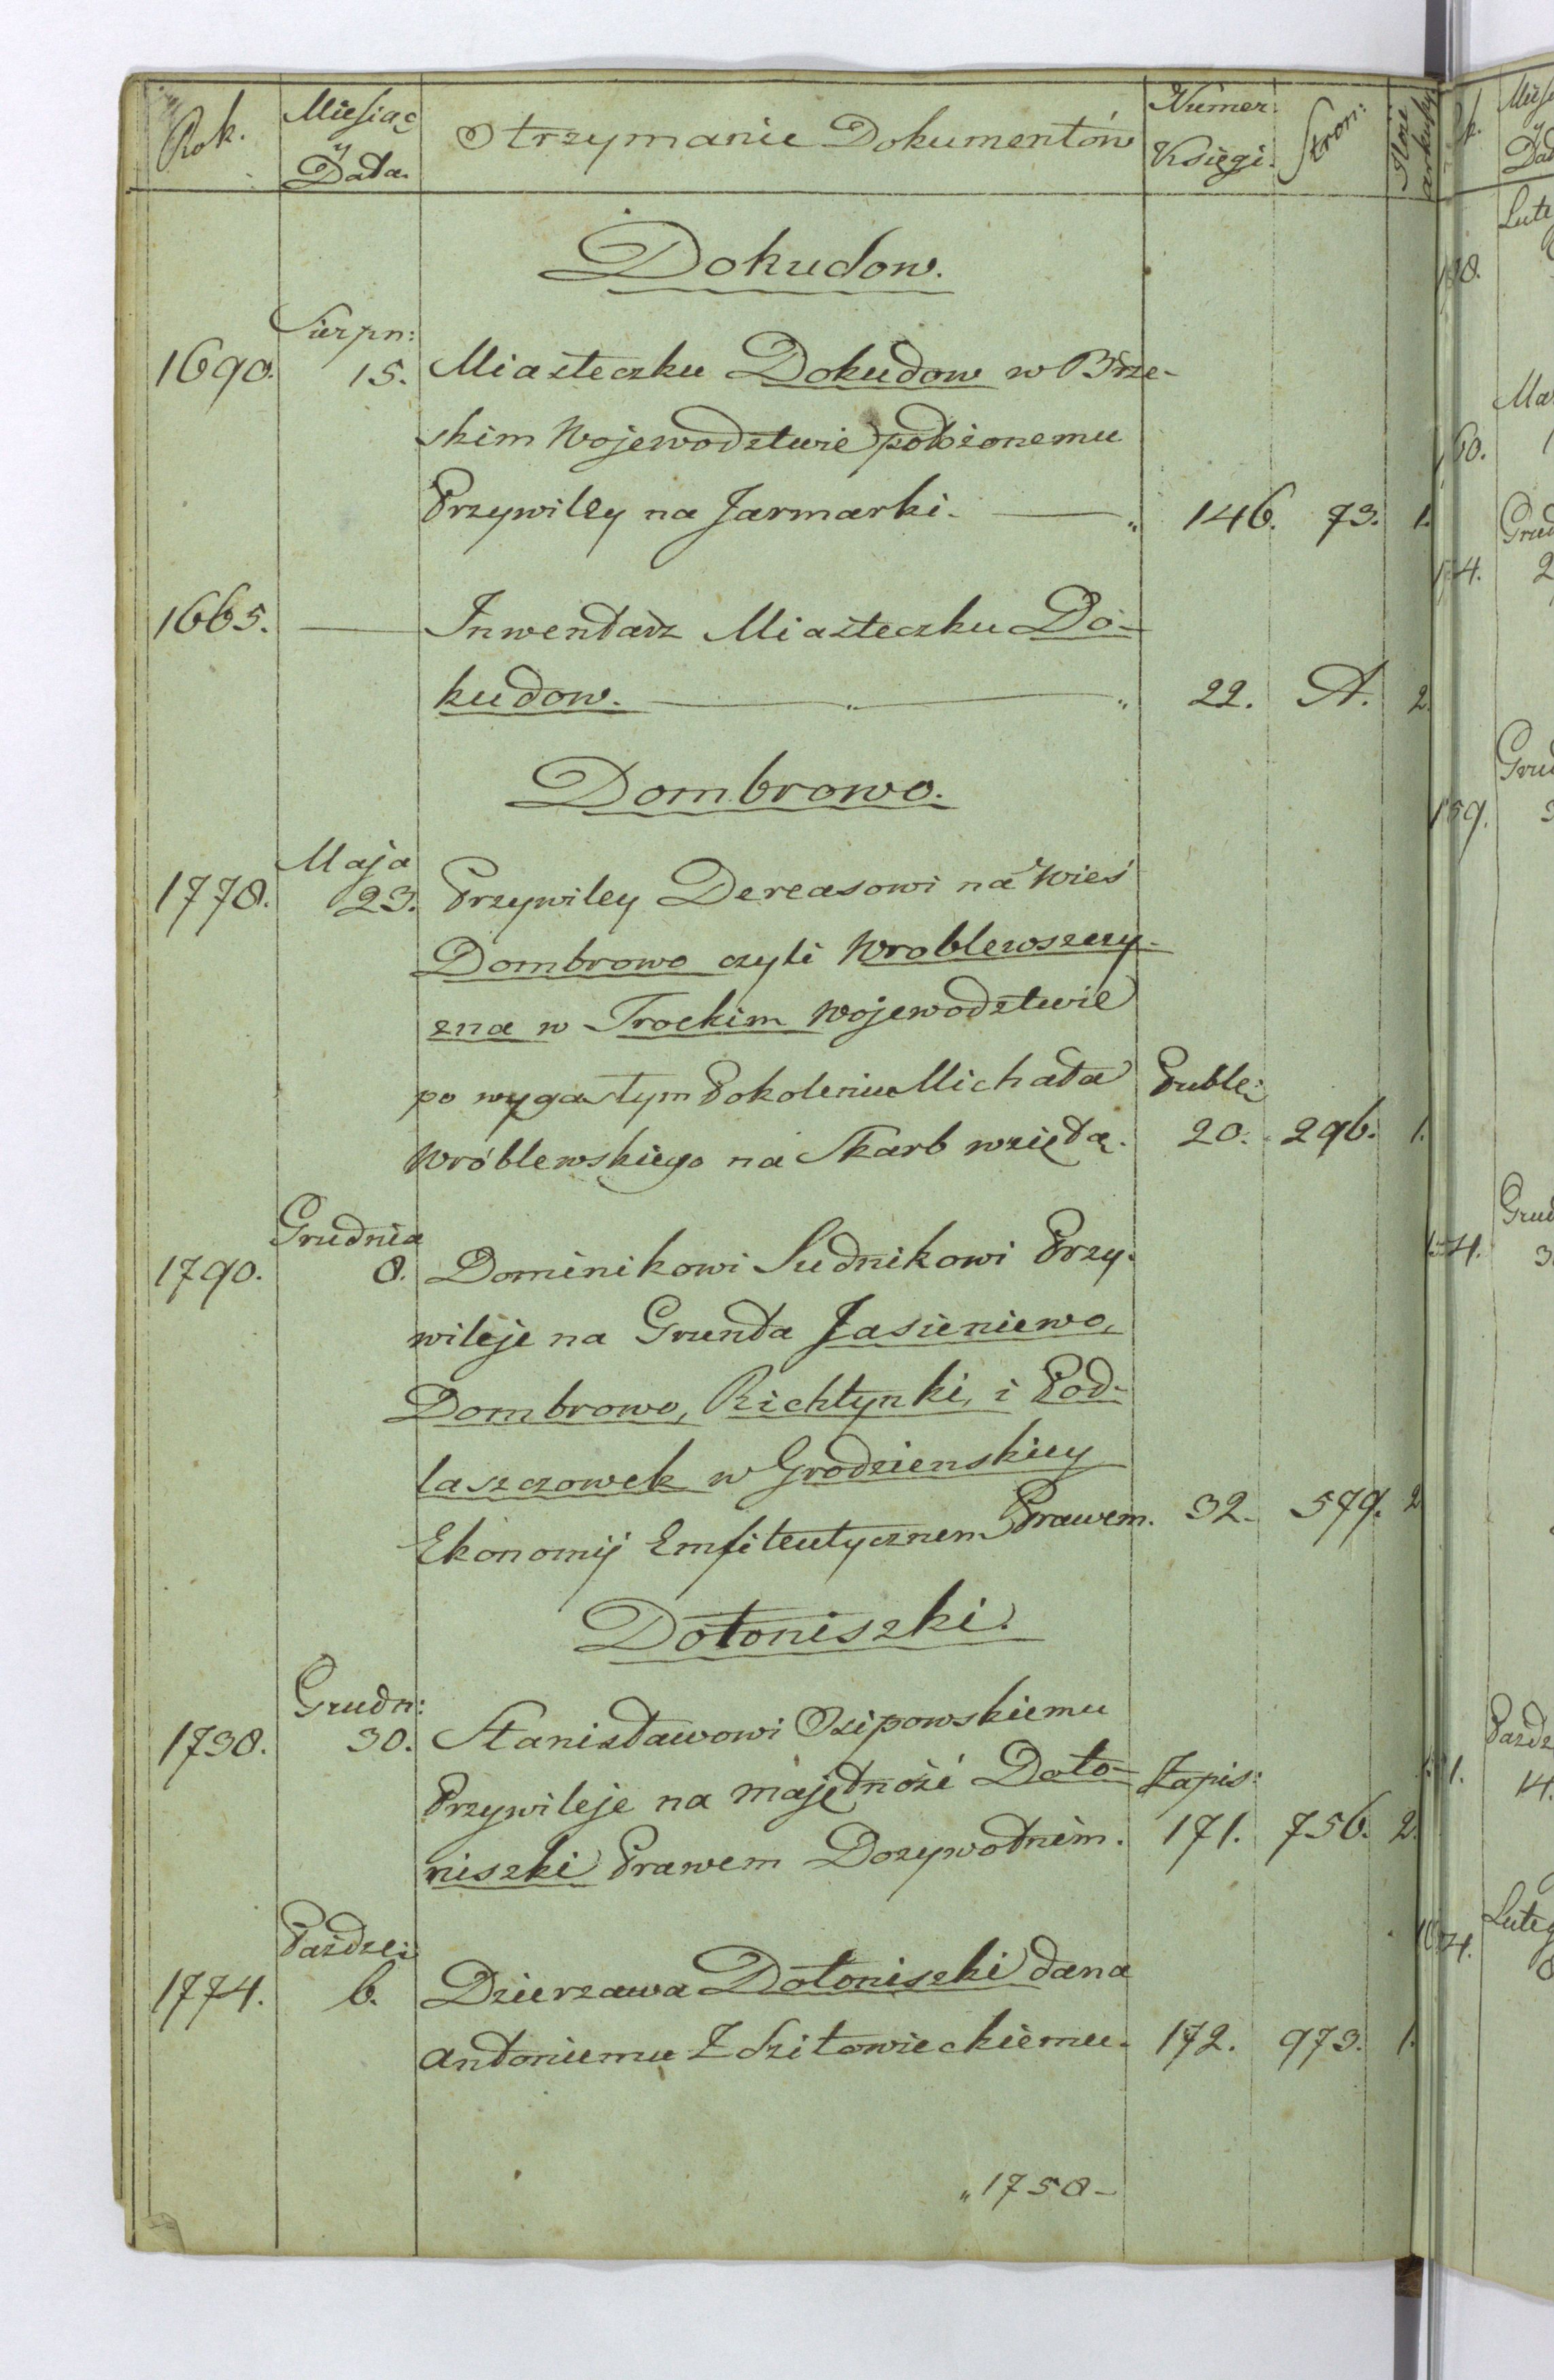 Rok. Miesiąc y Data. Otrzymanie Dokumentów Numer: Księgi. Stron: Ilość arkuszy
Dokudow.
Sierpn:
1690. 15. Miasteczku Dokudow w Brze-
skim Wojewodztwie położonemu
Przywiley na Jarmarki. 146. 73. 1.
1665. Inwentarz Miasteczku Do-
kudow. 22. A. 2.
Dombrowo.
Maja
1778. 23. Przywiley Dereasowi na Wieś
Dombrowo czyli Wroblewszczy-
zna w Trockim Wojewodztwie
po wygasłym Pokoleniu Michała Publ:
Wróblewskiego na Skarb wziętą. 20. 296. 1.
Grudnia
1790. 8. Dominikowi Sudnikowi Przy-
wileje na Grunta Jasieniewo,
Dombrowo, Richtynki, i Pod-
laszczowek w Grodzienskiey
Ekonomij Emfiteutycznem Prawem. 32. 579. 2
Dołoniszki.
Grudn:
1738. 30. Stanisławowi Osipowskiemu
Przywileje na majętność Doło- Zapis:
niszki Prawem Dozywotnim. 171. 756. 2.
Paźdze:
1774. 6. Dzierzawa Dołoniszki dana
Antoniemu Zdzitowieckiemu. 172. 973. 1.
„1758-